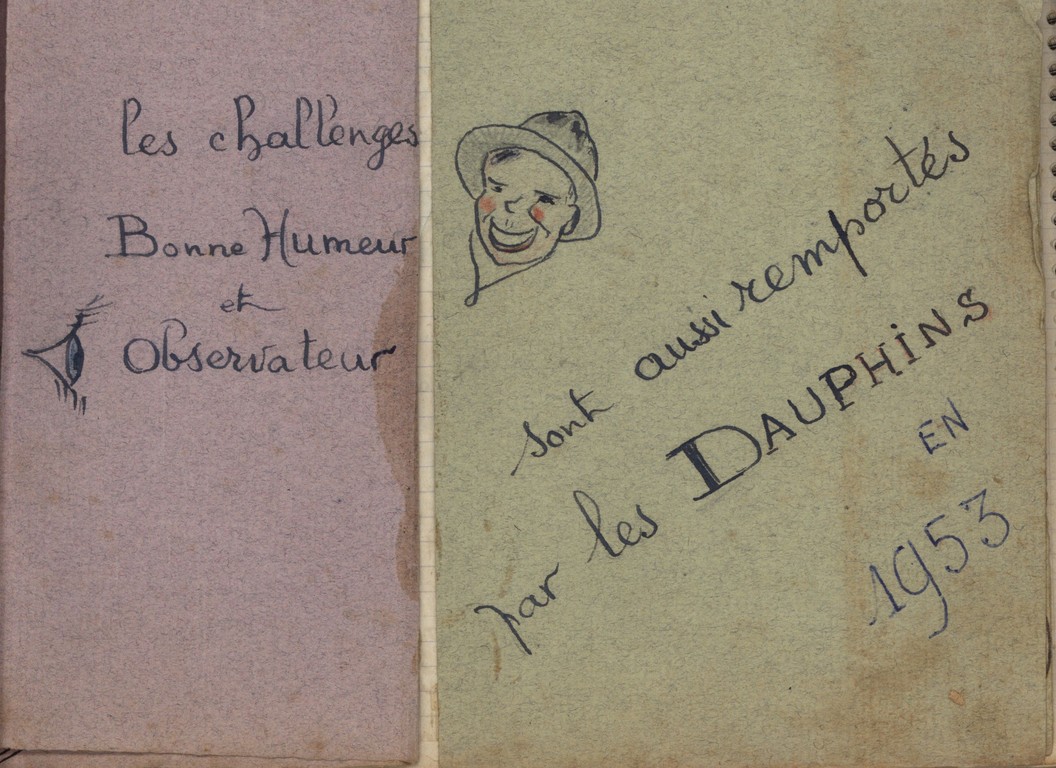 les challenges
Bonne Humeur
et
Observateur
sont aussi remportés
par les DAUPHINS
EN
1953